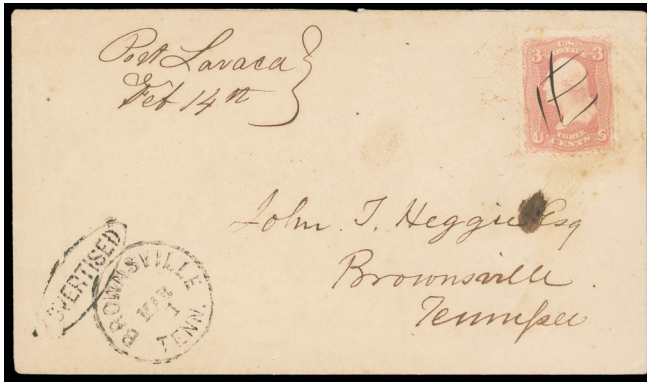 Port Lavaca
Feb 14th
U.S. POSTAGE
3 3
U THREE CENTS S
John T. Heggie Esq
Brownsville
Tennessee
ADVERTISED
BROWNSVILLE
MAR
1
TENN.